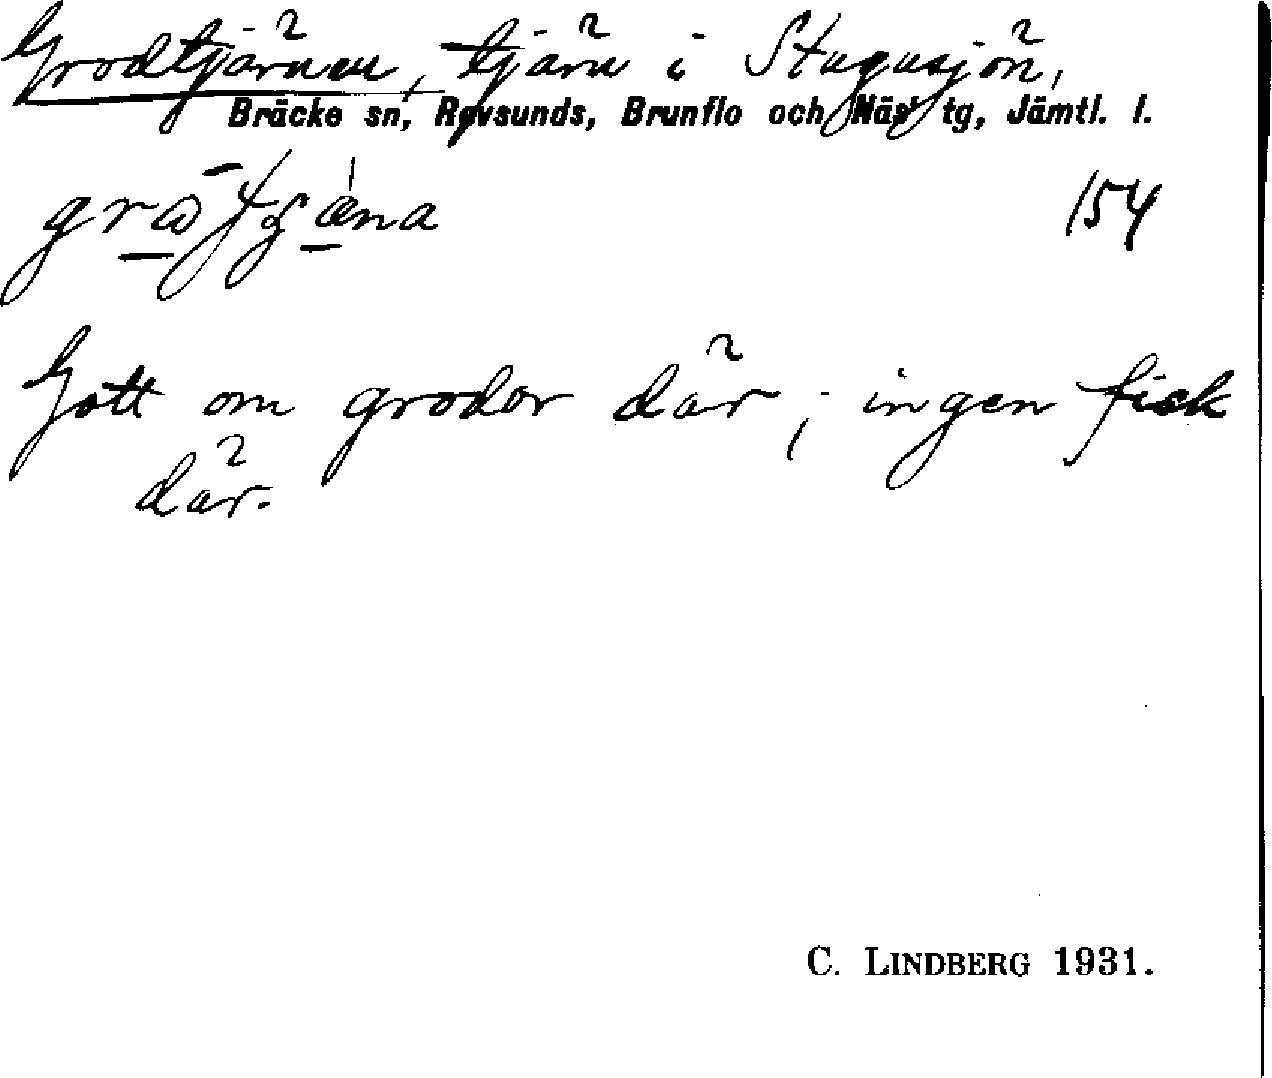 Grodtjärnen, tjärn i Stugusjön,
Bräcke sn, Revsunds, Brunflo och Näs tg, Jämtl. l.
154
Gott om grodor där; ingen fisk
där.
C. LINDBERG 1931.